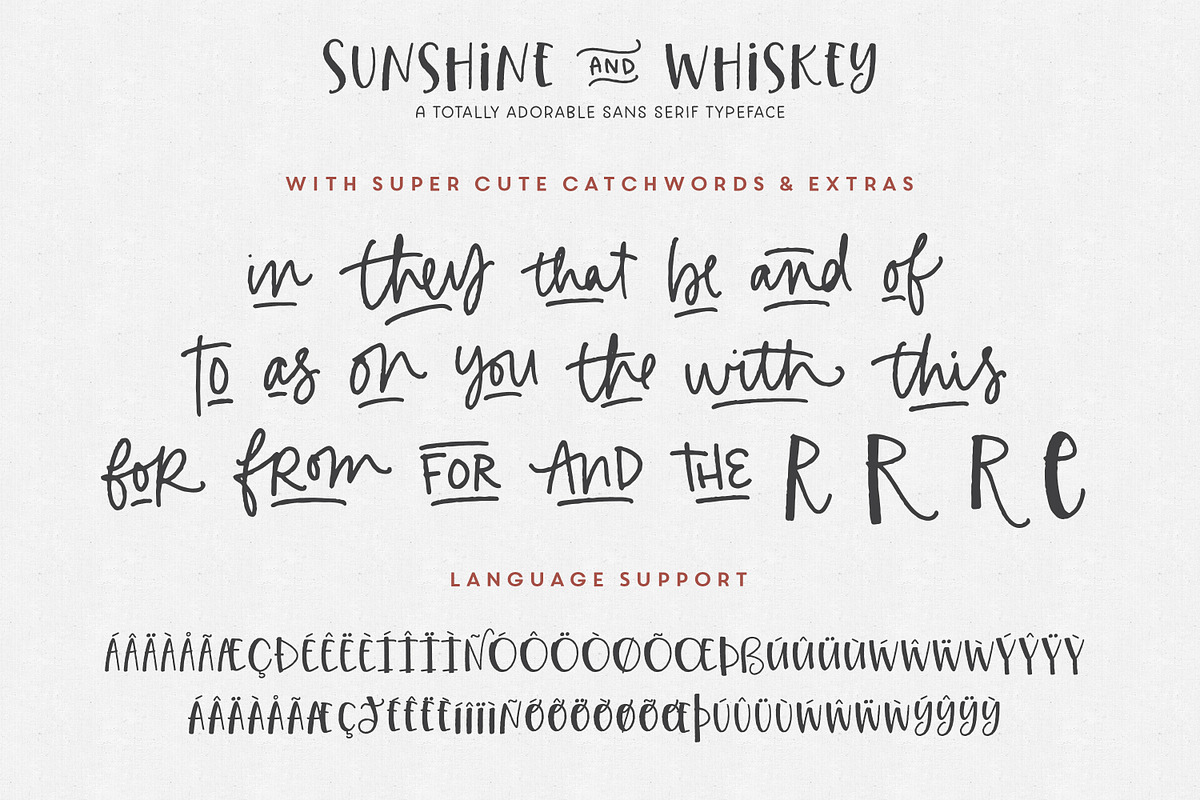 SUNSHiNE AND WHiSKEY
A TOTALLY ADORABLE SANS SERIF TYPEFACE
WITH SUPER CUTE CATCHWORDS & EXTRAS
in they that be and of
to as on you the with this
for from FOR AND THE R R R e
LANGUAGE SUPPORT
ÁÂÄÀÅÃÆÇÐÉÊËÈÍÎÏÌÑÓÔÖÒØÕŒÞßÚÛÜÙẂŴẄẀÝŶŸỲ
ÁÂÄÀÅÃÆÇÐÉÊËÈíîïìÑÓÔÖÒØÕŒÞÚÛÜÙẂŴẄẀýŷÿỳ